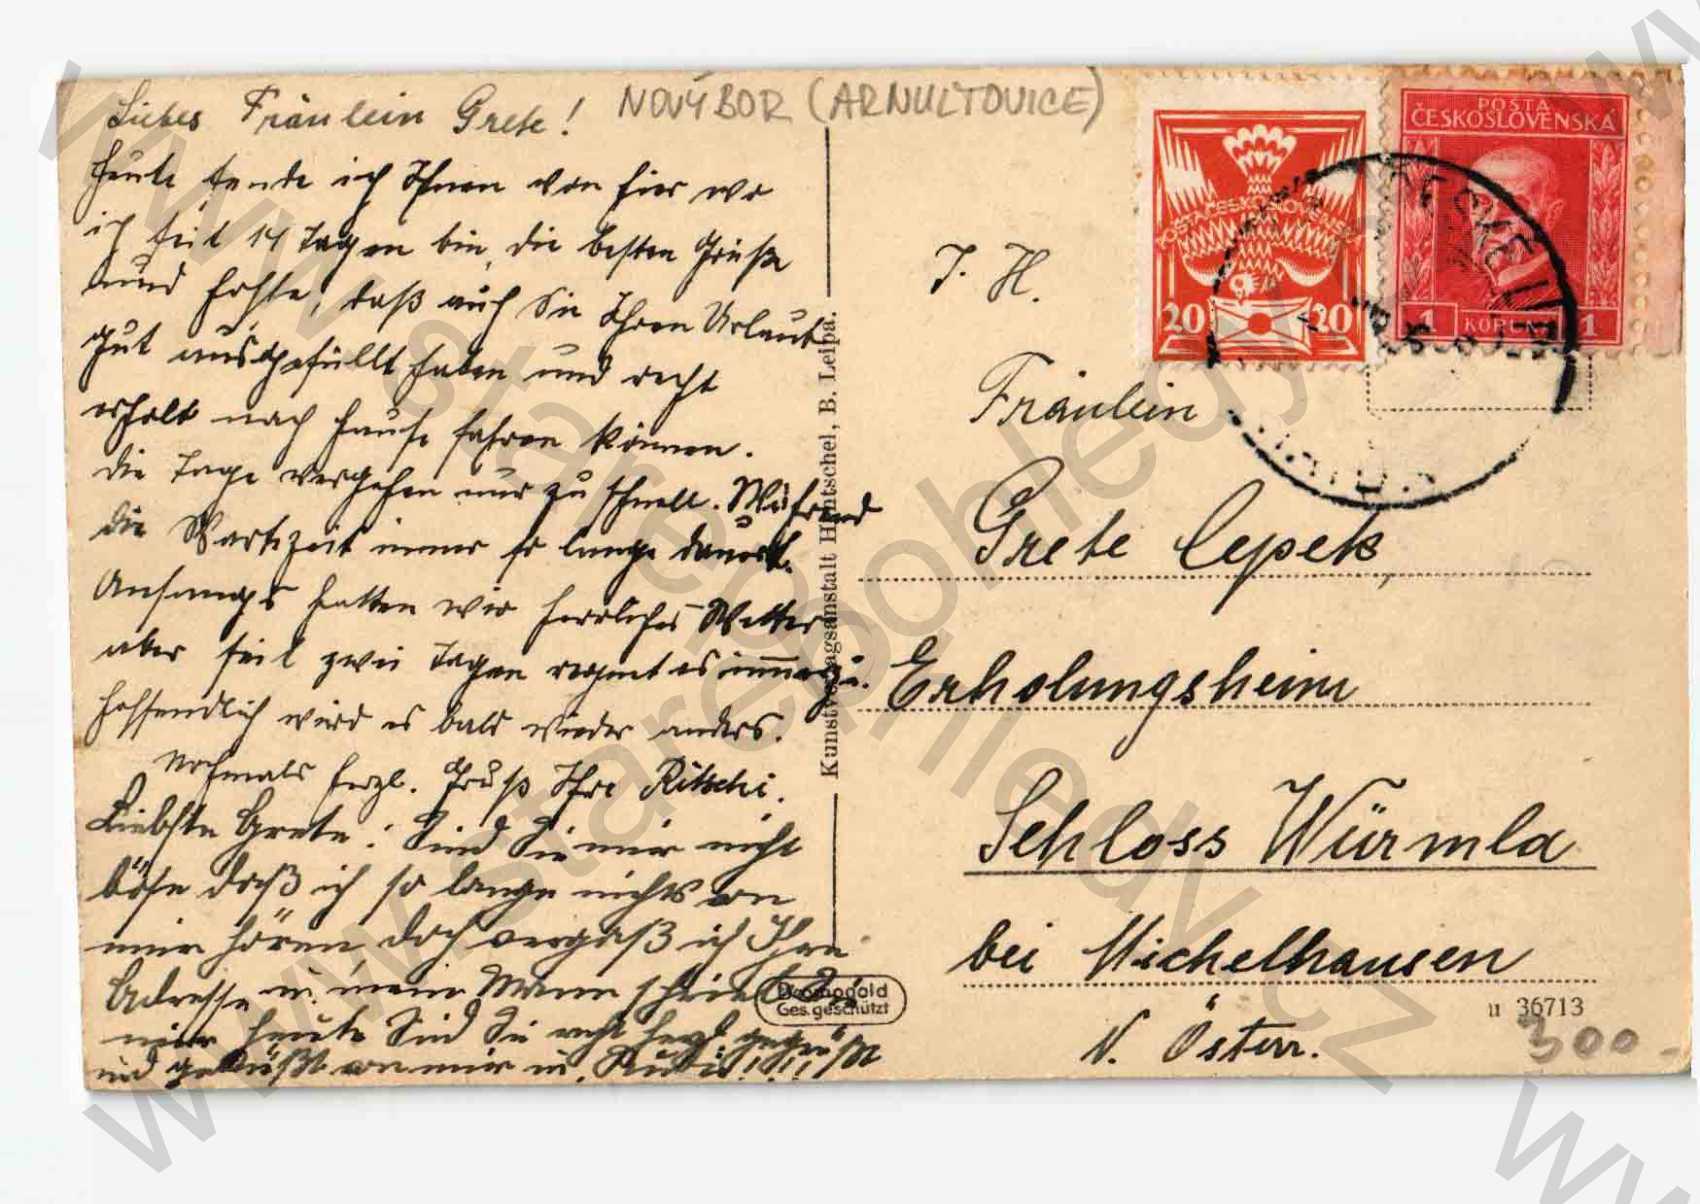 Liebes Fräulein Grete!
NOVÝ BOR (ARNULTOVICE)
Heute sende ich Ihnen von hier wo
ich seit 14 Tagen bin, die besten Grüße
und hoffe, daß auch Sie Ihren Urlaub
gut ausgefüllt haben und recht
erholt nach Hause fahren können.
Die Tage vergehen nur zu schnell. Während
die Wartezeit immer so lange dauert.
Anfangs hatten wir herrliches Wetter
aber seit zwei Tagen regnet es immerzu.
Hoffendlich wird es bald wieder anders.
Nochmals herzl. Gruß Ihre Ritschi.
Liebste Grete! Sind Sie mir nicht
böse daß ich so lange nichts von
mir hören doch vergaß ich Ihre
Adresse u. mein Mann schrieb
mir heute Sind Sie recht herzl gegrüßt
und geküßt von mir u.
Kunstverlagsanstalt Hentschel, B. Leipa.
Bromogold
Ges. geschützt
POŠTA ČESKOSLOVENSKÁ
20 20
POŠTA
ČESKOSLOVENSKÁ
1 KORUNA 1
I. H.
Fräulein
Grete Cepek,
Erholungsheim
Schloss Würmla
bei Michelhausen
N. Österr.
u 36713
300-
www.starepohledy.cz
www.starepohledy.cz